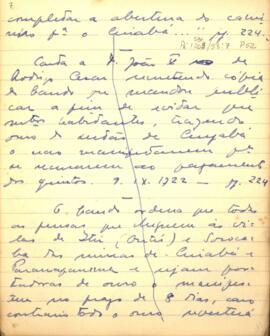 7
completar a abertura do cami-
nho pª o Cuiabá..." M. 224.
P02
Carta a D. João V de
Rodrigo Cesar remetendo cópia
do bando q mandou publi-
car a fim de evitar que
muitos habitantes, trazendo
ouro do sertão de Cuyabá
o não manifestassem pª
se eximirem ao pagamento
dos quintos. 9. IX. 1722 — M. 224
O bando ordena que todas
as pessoas que cheguem às vi-
las de Itu (Outú) e Soroca-
ba das minas de Cuiabá e
Paranapanema e sejam por-
tadoras de ouro o manifes-
tem no prazo de 8 dias, caso
contrario todo o ouro reverterá